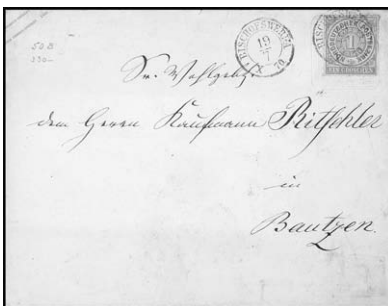 BISCHOFSWERDA
19
X
70
1
50 B
330-
Sr. Wohlgeb.
dem Herrn Kaufmann Ritschler
in
Bautzen.